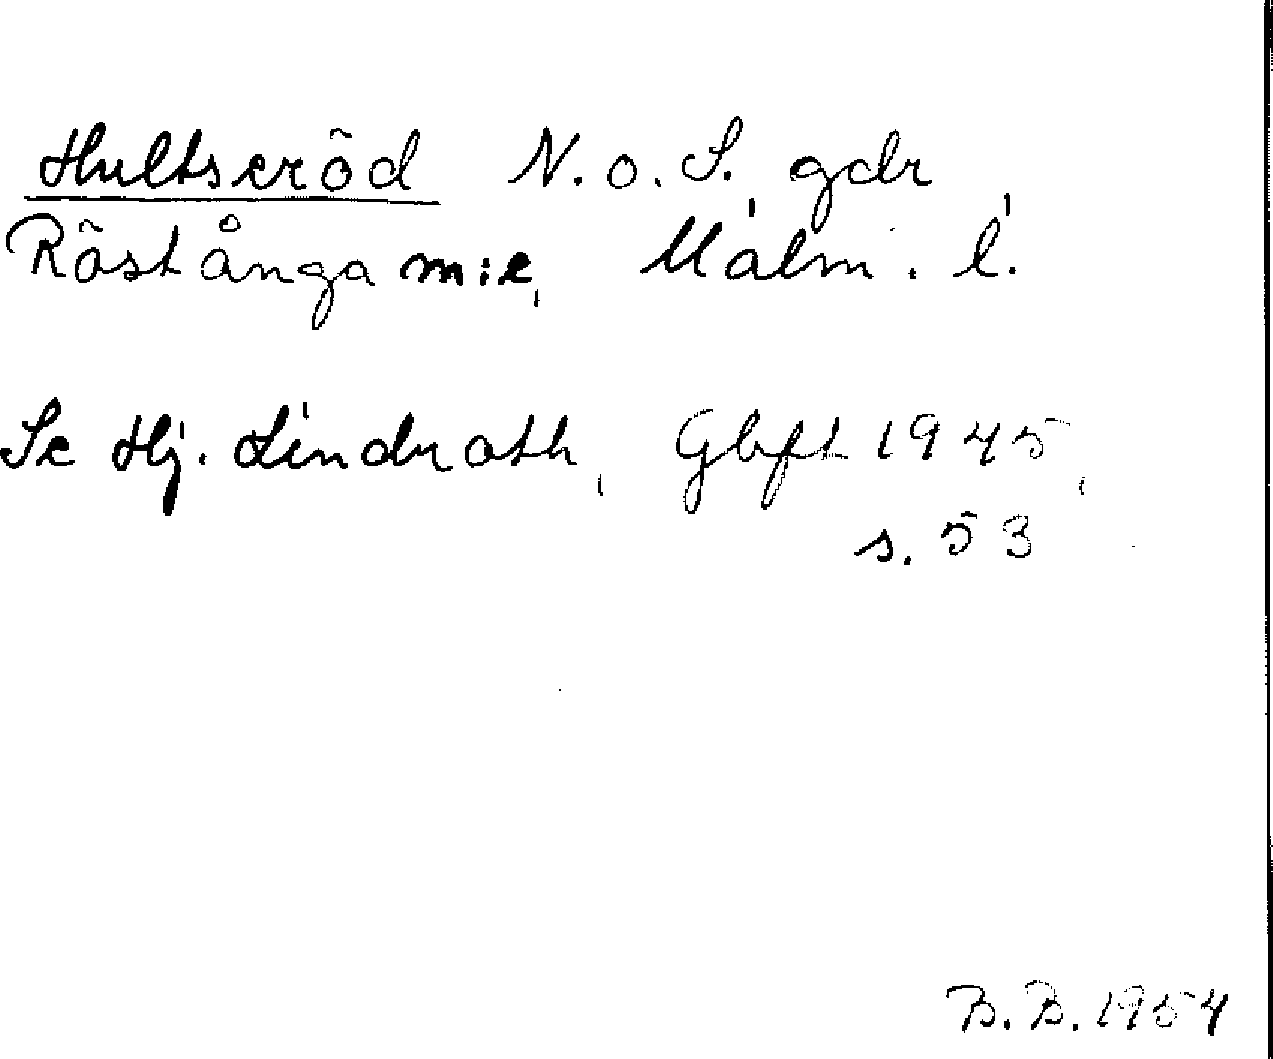 Hultseröd N. o. S. gdr
Röstånga m:e, Malm. l.
Se Hj. Lindroth, Gbft 1945,
s. 53
B. B. 1954